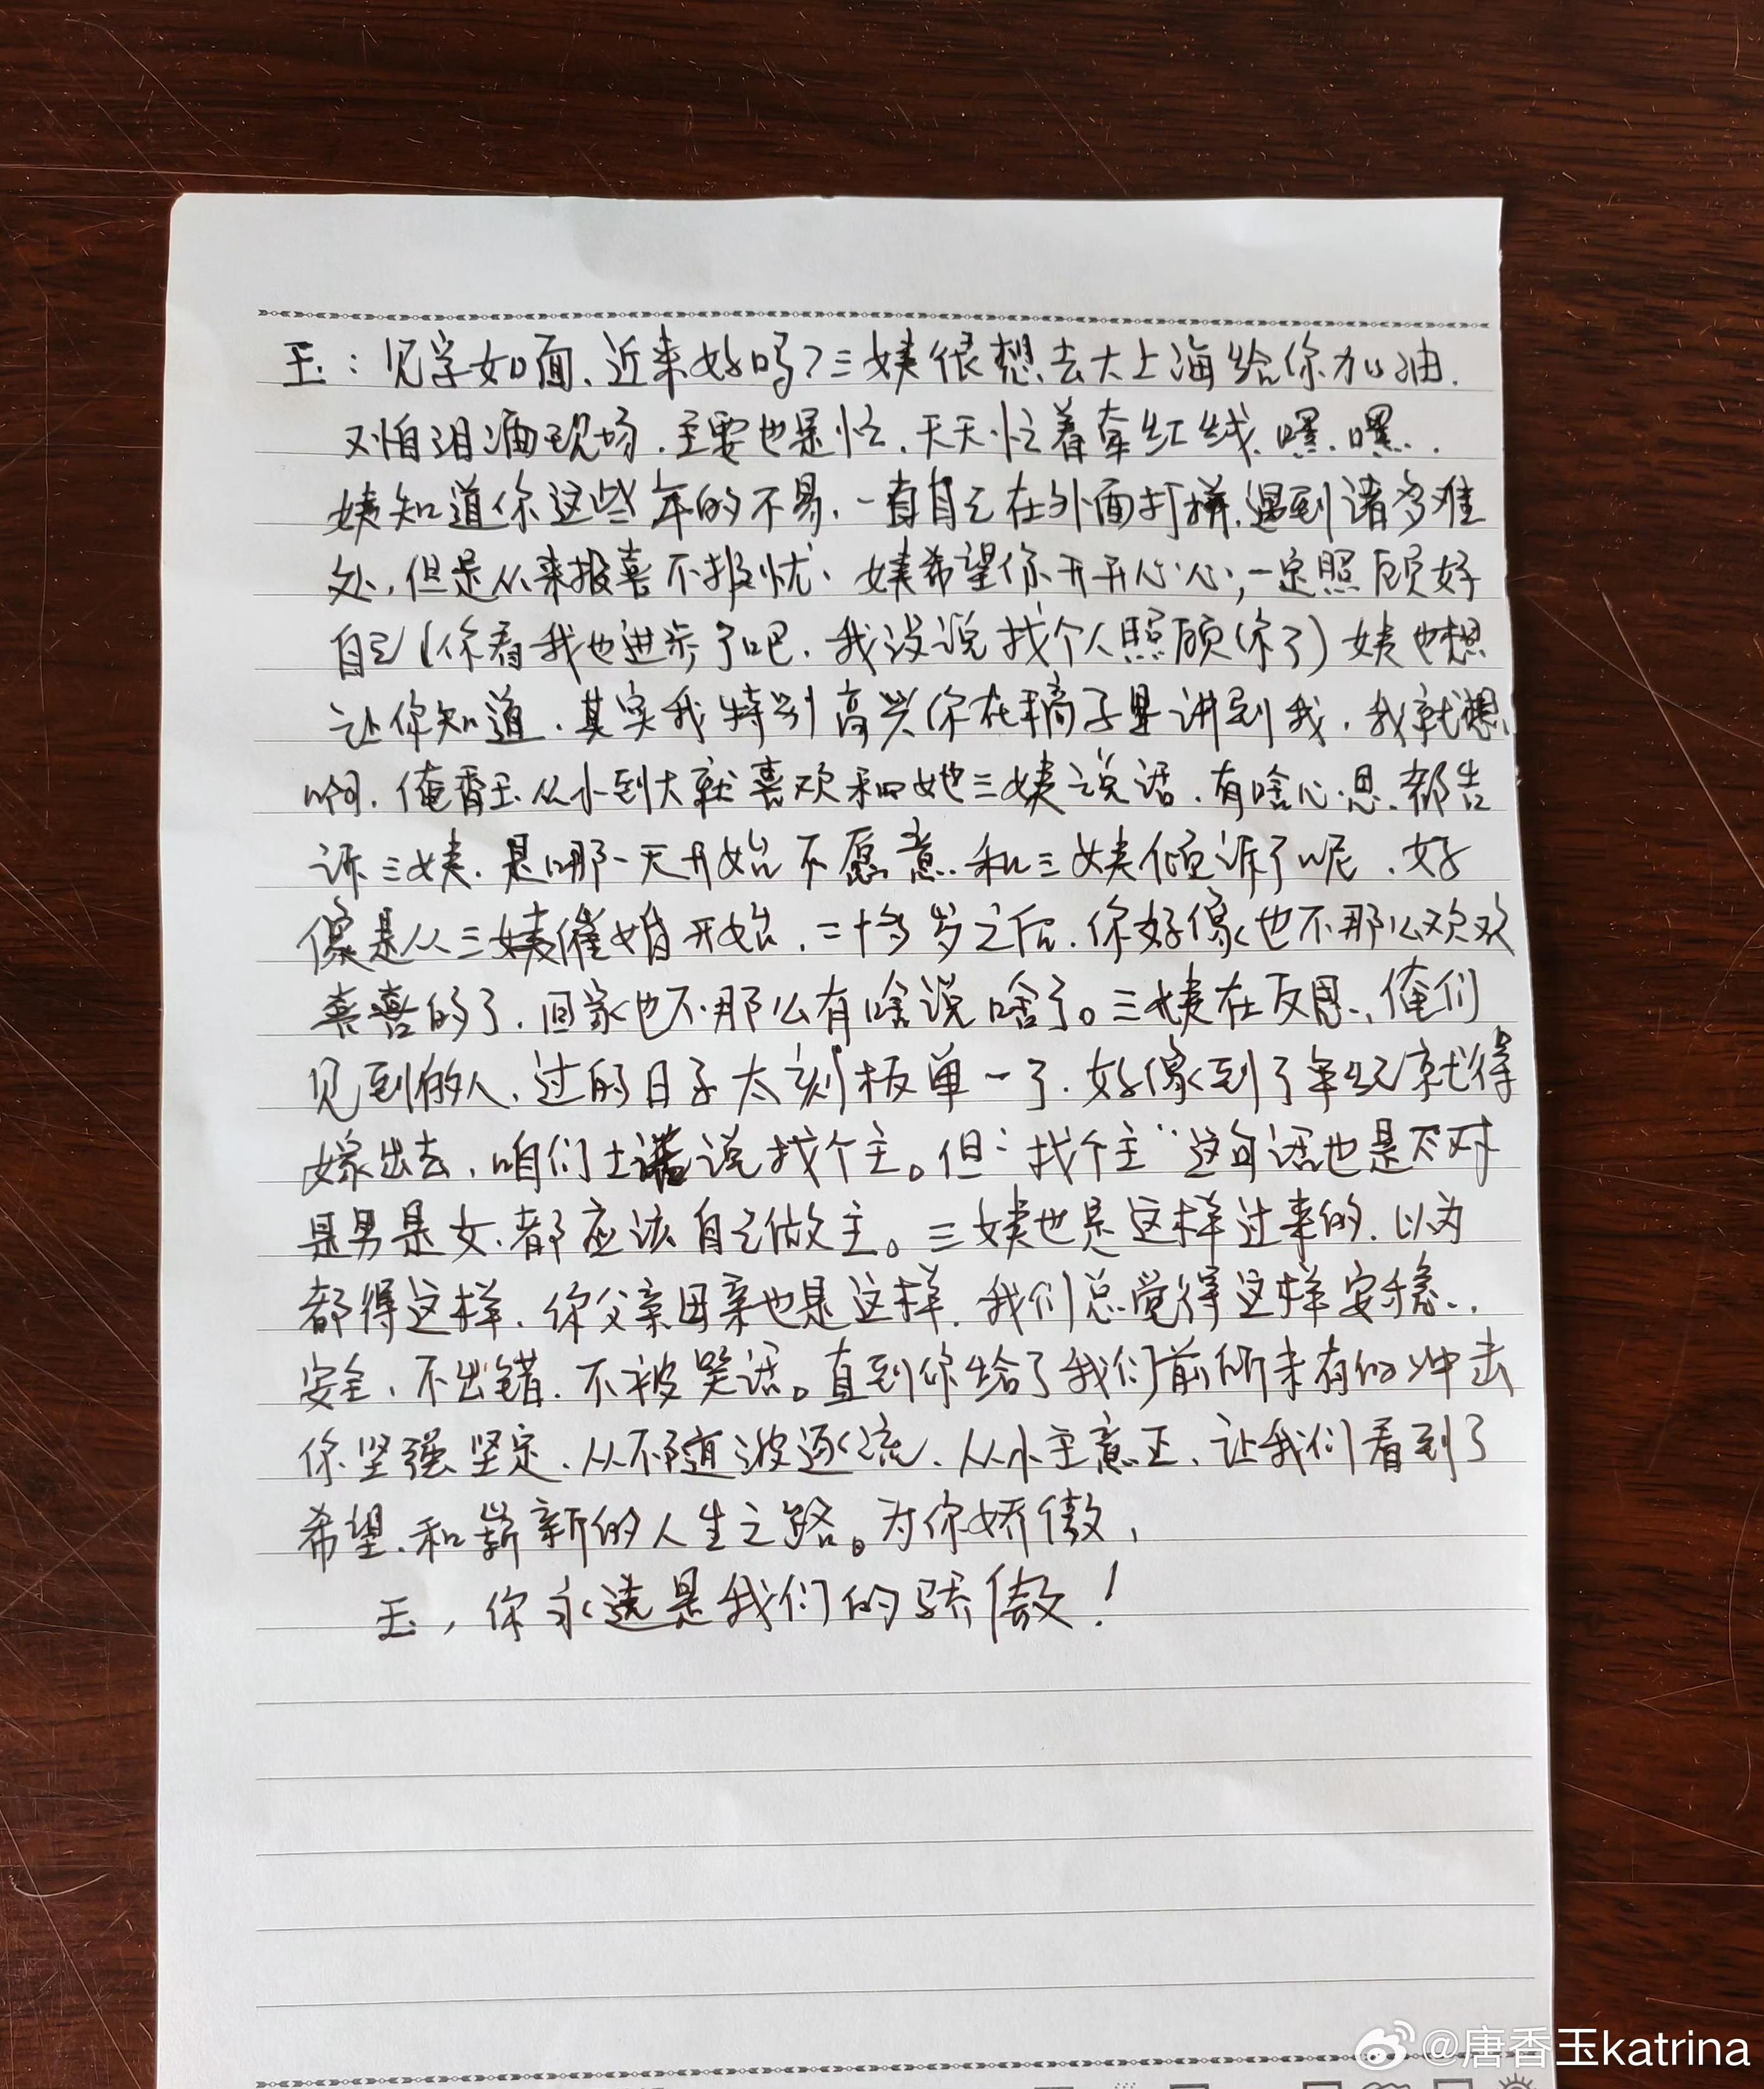 玉：见字如面、近来好吗？三姨很想去大上海给你加油.
又怕泪洒现场.主要也是忙.天天忙着牵红线.嘿.嘿.
姨知道你这些年的不易.一直自己在外面打拼.遇到诸多难
处.但是从来报喜不报忧、姨希望你开开心心；一定照顾好
自己(你看我也进步了吧.我没说找个人照顾你了)姨也想
让你知道.其实我特别高兴你在稿子里讲到我.我就想
啊.俺香玉从小到大就喜欢和她三姨说话.有啥心思.都告
诉三姨.是哪一天开始不愿意.和三姨倾诉了呢.好
像是从三姨催婚开始.二十多岁之后.你好像也不那么欢欢
喜喜的了.回家也不那么有啥说啥了。三姨在反思.、俺们
见到的人、过的日子太刻板单一了.好像到了年纪就得
嫁出去、咱们土话说找个主。但“找个主”这句话也是不对
是男是女、都应该自己做主。三姨也是这样过来的.以为
都得这样.你父亲母亲也是这样.我们总觉得这样安稳.、
安全、不出错.不被笑话。直到你给了我们前所未有的冲击
你坚强坚定.从不随波逐流、从小主意正、让我们看到了
希望、和崭新的人生之路。为你娇傲，
玉，你永远是我们的骄傲！
@唐香玉katrina